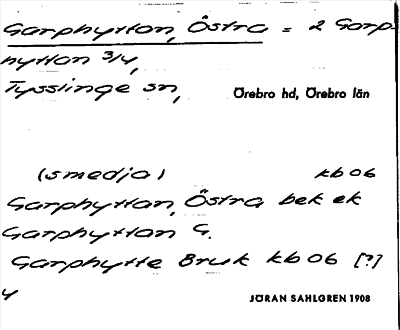 Garphyttan, Östra = 2 Garp-
hyttan 3/4,
Tysslinge sn,
Örebro hd, Örebro län
(smedja) kb 06
Garphyttan, Östra bek ek
Garphyttan G.
Garphytte Bruk kb 06 [?]
4
JÖRAN SAHLGREN 1908